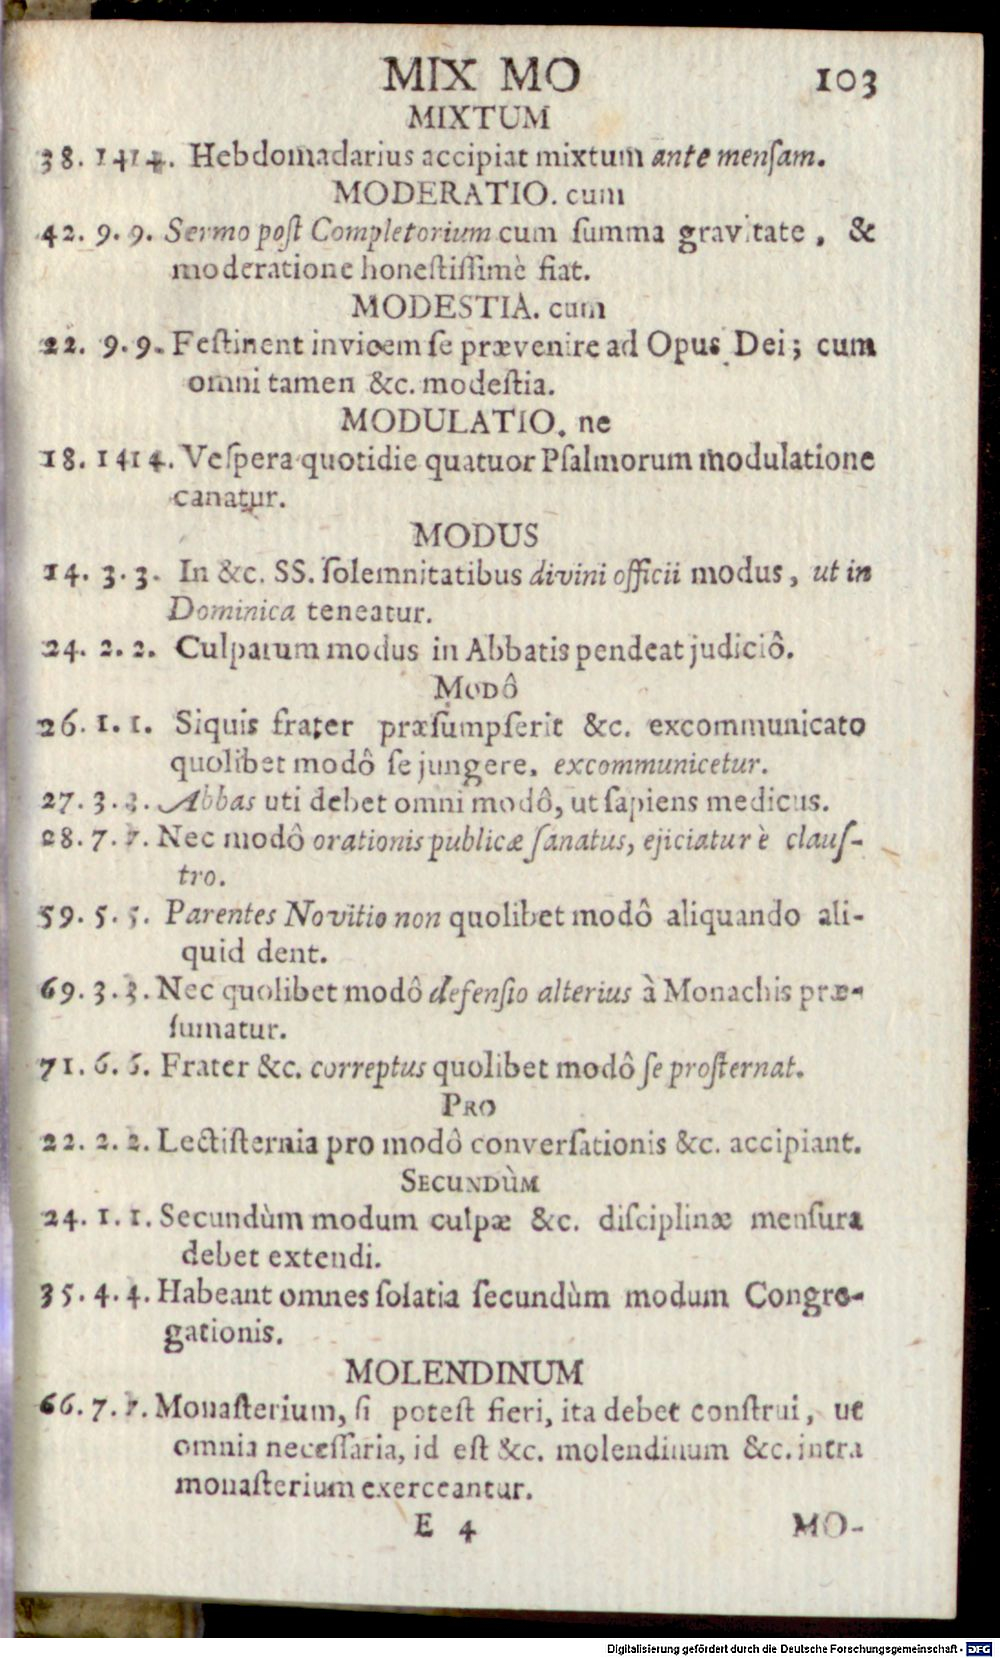 MIX MO 103
MIXTUM
38. 1414. Hebdomadarius accipiat mixtum ante menſam.
MODERATIO. cum
42. 9. 9. Sermo poſt Completorium cum ſumma gravitate, &
moderatione honeſtiſſimè fiat.
MODESTIA. cum
22. 9. 9. Feſtinent invicem ſe prævenire ad Opus Dei; cum
omni tamen &c. modeſtia.
MODULATIO. ne
18. 1414. Veſpera quotidie quatuor Pſalmorum modulatione
canatur.
MODUS
14. 3. 3. In &c. SS. ſolemnitatibus divini officii modus, ut in
Dominica teneatur.
24. 2. 2. Culparum modus in Abbatis pendeat judiciô.
MODÔ
26. 1. 1. Siquis frater præſumpſerit &c. excommunicato
quolibet modô ſe jungere, excommunicetur.
27. 3. 3. Abbas uti debet omni modô, ut ſapiens medicus.
28. 7. 7. Nec modô orationis publicæ ſanatus, ejiciatur è clauſ-
tro.
59. 5. 5. Parentes Novitio non quolibet modô aliquando ali-
quid dent.
69. 3. 3. Nec quolibet modô defenſio alterius à Monachis præ-
ſumatur.
71. 6. 6. Frater &c. correptus quolibet modô ſe proſternat.
PRO
22. 2. 2. Lectiſternia pro modô converſationis &c. accipiant.
SECUNDÙM
24. 1. 1. Secundùm modum culpæ &c. diſciplinæ menſura
debet extendi.
35. 4. 4. Habeant omnes ſolatia ſecundùm modum Congre-
gationis.
MOLENDINUM
66. 7. 7. Monaſterium, ſi poteſt fieri, ita debet conſtrui, ut
omnia neceſſaria, id eſt &c. molendinum &c. intra
monaſterium exerceantur.
E 4 MO-
Digitalisierung gefördert durch die Deutsche Forschungsgemeinschaft - DFG